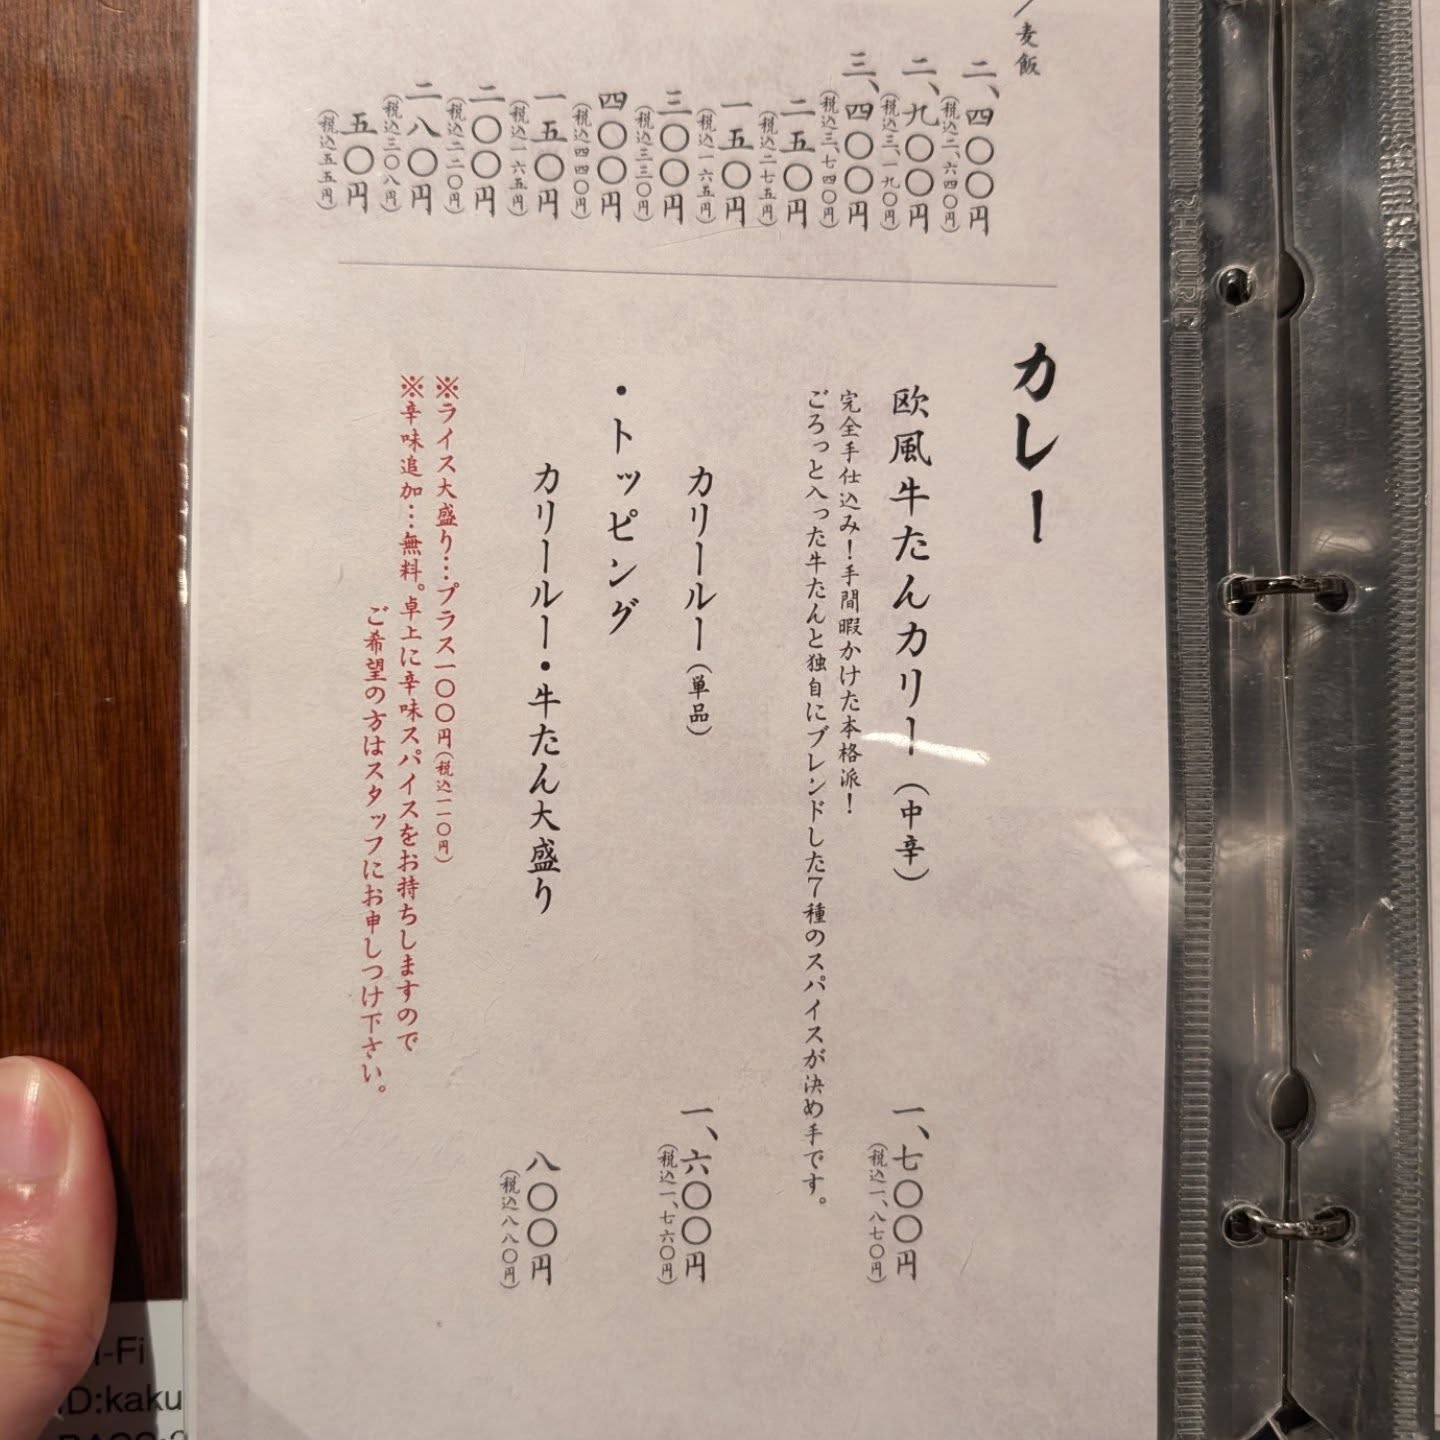 ／麦飯
二、四〇〇円
（税込二、六四〇円）
二、九〇〇円
（税込三、一九〇円）
三、四〇〇円
（税込三、七四〇円）
二五〇円
（税込二七五円）
一五〇円
（税込一六五円）
三〇〇円
（税込三三〇円）
四〇〇円
（税込四四〇円）
一五〇円
（税込一六五円）
二〇〇円
（税込二二〇円）
二八〇円
（税込三〇八円）
五〇円
（税込五五円）
カレー
欧風牛たんカリー（中辛）
一、七〇〇円
（税込一、八七〇円）
完全手仕込み！手間暇かけた本格派！
ごろっと入った牛たんと独自にブレンドした7種のスパイスが決め手です。
カリールー（単品）
一、六〇〇円
（税込一、七六〇円）
・トッピング
カリールー・牛たん大盛り
八〇〇円
（税込八八〇円）
※ライス大盛り…プラス一〇〇円（税込一一〇円）
※辛味追加…無料。卓上に辛味スパイスをお持ちしますので
ご希望の方はスタッフにお申しつけ下さい。
-Fi
ID:kaku